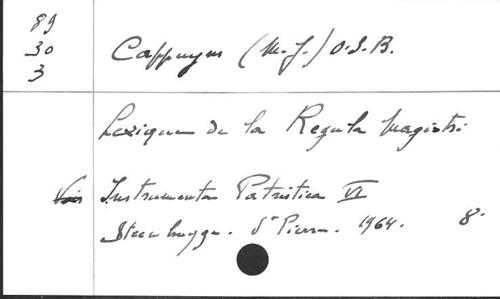 89
30
3
Cappuyns (M.-J.) O.S.B.
Lexique de la Regula Magistri
Voir Instrumenta Patristica VI
Steenbrugge. St Pierre. 1964. 8°